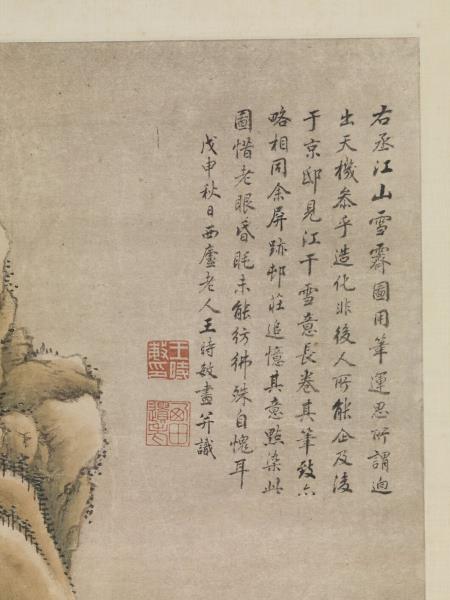 右丞江山雪霽圖用筆運思所謂迥
出天機參乎造化非後人所能企及後
于京邸見江干雪意長卷其筆致亦
略相同余屏跡邨莊追憶其意點染此
圖惜老眼昏眊未能彷彿殊自愧耳
戊申秋日西廬老人王時敏畫并識
王時敏印
西田遺老